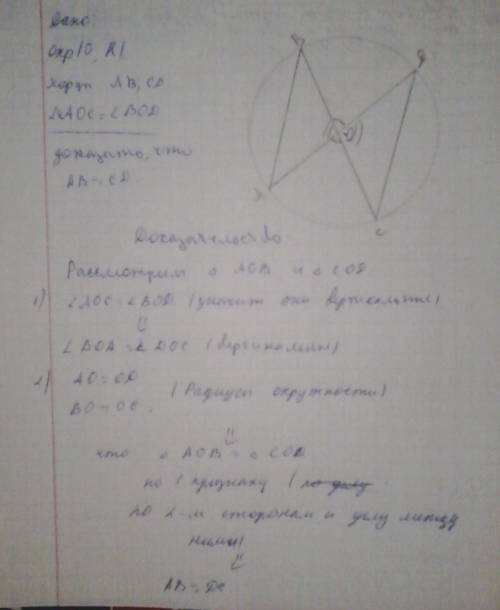 Дано:
Окр(O, R)
хорды AB, CD
∠AOC = ∠BOD
доказать, что
AB = CD
B
D
O
A
C
Доказательство
Рассмотрим △ AOB и △ COD
1) ∠AOC = ∠BOD (значит они вертикальные)
⇓
∠BOA = ∠DOC (вертикальны)
2) AO = OD
BO = OC (Радиусы окружности)
⇓
что △ AOB = △ COD
по 1 признаку (по углу
по 2-м сторонам и углу между
ними)
⇓
AB = DC